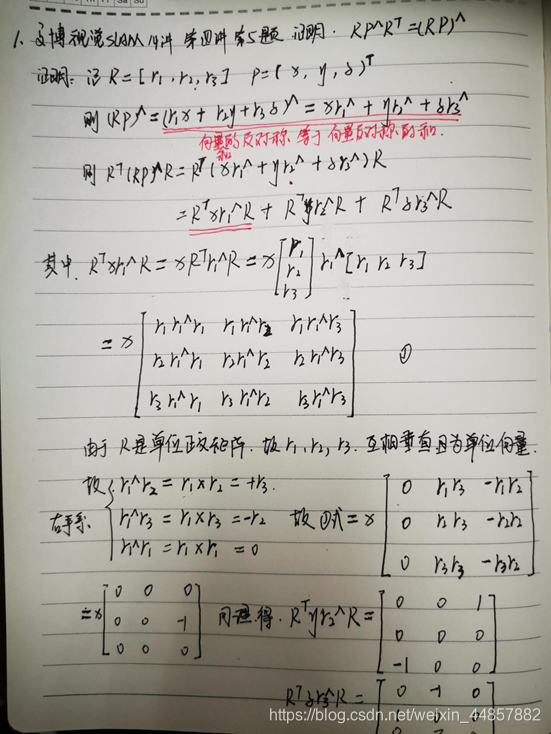 1. 高博视觉SLAM 14讲 第四讲 第5题 证明. RP^R^T=(RP)^
证明: 记 R=[r₁, r₂, r₃] P=(x, y, z)^T
则 (RP)^=(r₁x + r₂y + r₃z)^ = xr₁^ + yr₂^ + zr₃^
向量和的反对称 等于 向量反对称的和.
则 R^T(RP)^R = R^T(xr₁^ + yr₂^ + zr₃^)R
= R^Txr₁^R + R^Tyr₂^R + R^Tzr₃^R
其中. R^Txr₁^R = xR^Tr₁^R = x[r₁ r₂ r₃] r₁^[r₁ r₂ r₃]
= x
r₁r₁^r₁ r₁r₁^r₂ r₁r₁^r₃
r₂r₁^r₁ r₂r₁^r₂ r₂r₁^r₃ ①
r₃r₁^r₁ r₃r₁^r₂ r₃r₁^r₃
由于 R是单位正交矩阵. 故 r₁, r₂, r₃. 互相垂直且为单位向量.
故 右手系
r₁^r₂ = r₁×r₂ = +r₃.
r₁^r₃ = r₁×r₃ = -r₂
r₁^r₁ = r₁×r₁ = 0
故 ①式 = x
0 r₁r₃ -r₁r₂
0 r₂r₃ -r₂r₂
0 r₃r₃ -r₃r₂
= x
0 0 0
0 0 -1
0 0
同理得. R^Tyr₂^R =
0 0 1
0 0 0
-1 0 0
R^Tzr₃^R =
0 -1 0
https://blog.csdn.net/weixin_44857882